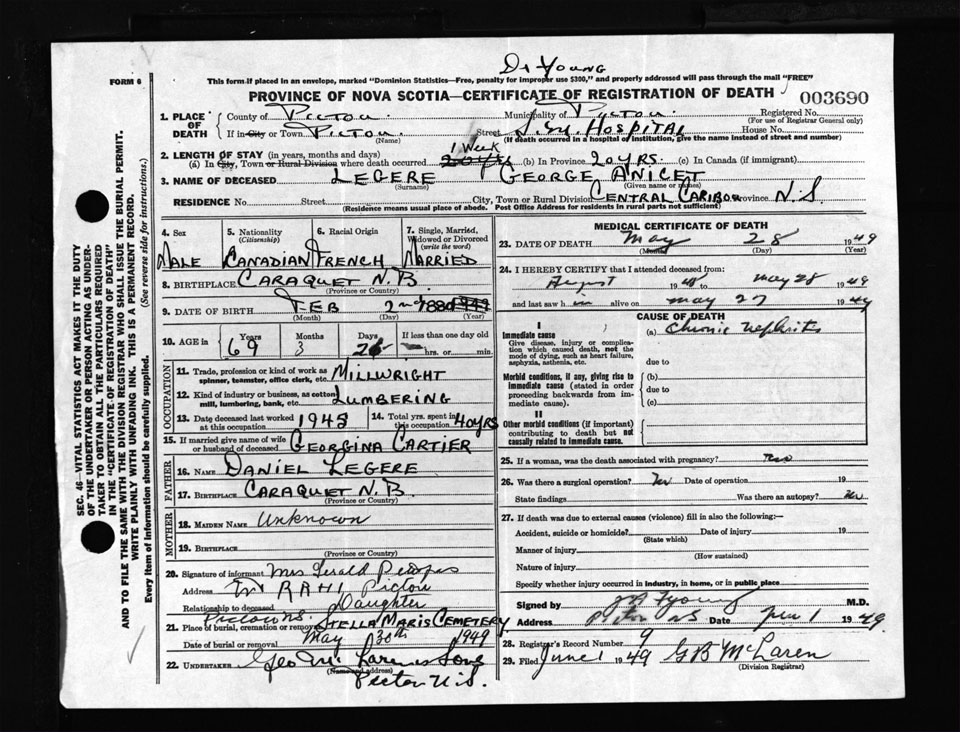 Dr Young
FORM 6
This form if placed in an envelope, marked "Dominion Statistics—Free, penalty for improper use $300," and properly addressed will pass through the mail "FREE"
PROVINCE OF NOVA SCOTIA—CERTIFICATE OF REGISTRATION OF DEATH
003690
1. PLACE OF DEATH
County of Pictou Municipality of Pictou Registered No.
(For use of Registrar General only)
If in City or Town Pictou Street S.M. HOSPITAL House No.
(Name) (If death occurred in a hospital of institution, give the name instead of street and number)
1 Week
2. LENGTH OF STAY (in years, months and days)
(a) In City, Town or Rural Division where death occurred 20 yrs (b) In Province 20 YRS. (c) In Canada (if immigrant)
3. NAME OF DECEASED LEGERE GEORGE ANICET
(Surname) (Given name or names)
RESIDENCE No. Street City, Town or Rural Division CENTRAL CARIBOU Province N.S.
(Residence means usual place of abode. Post Office Address for residents in rural parts not sufficient)
4. Sex 5. Nationality (Citizenship) 6. Racial Origin 7. Single, Married, Widowed or Divorced (write the word)
MALE CANADIAN FRENCH MARRIED
8. BIRTHPLACE CARAQUET N.B.
(Province or Country)
9. DATE OF BIRTH FEB 2nd 1880 1949
(Month) (Day) (Year)
10. AGE in Years Months Days If less than one day old
69 3 26 hrs. or min.
OCCUPATION
11. Trade, profession or kind of work as spinner, teamster, office clerk, etc. MILLWRIGHT
12. Kind of industry or business, as cotton mill, lumbering, bank, etc. LUMBERING
13. Date deceased last worked at this occupation 1948 14. Total yrs. spent in this occupation 40 YRS
15. If married give name of wife or husband of deceased GEORGINA CARTIER
FATHER
16. NAME DANIEL LEGERE
17. BIRTHPLACE CARAQUET N.B.
(Province or Country)
MOTHER
18. MAIDEN NAME Unknown
19. BIRTHPLACE
(Province or Country)
20. Signature of informant Mrs Gerald
Address Pictou
Relationship to deceased Daughter
Pictou N.S.
21. Place of burial, cremation or removal STELLA MARIS CEMETERY
Date of burial or removal May 30th 1949
22. UNDERTAKER Geo Mc Larens Sons
(Name and address)
Pictou N.S.
MEDICAL CERTIFICATE OF DEATH
23. DATE OF DEATH May 28 1949
(Month) (Day) (Year)
24. I HEREBY CERTIFY that I attended deceased from:
August 1948 to may 28 1949
and last saw him alive on may 27 1949
CAUSE OF DEATH
I
Immediate cause (a) Chronic nephritis
Give disease, injury or complication which caused death, not the mode of dying, such as heart failure, asphyxia, asthenia, etc.
due to
Morbid conditions, if any, giving rise to immediate cause (stated in order proceeding backwards from immediate cause).
(b)
due to
(c)
II
Other morbid conditions (if important) contributing to death but not causally related to immediate cause.
25. If a woman, was the death associated with pregnancy? no
26. Was there a surgical operation? no Date of operation 19
State findings Was there an autopsy? no
27. If death was due to external causes (violence) fill in also the following:—
Accident, suicide or homicide? Date of injury 19
(State which)
Manner of injury
(How sustained)
Nature of injury
Specify whether injury occurred in industry, in home, or in public place
Signed by Young M.D.
Address Pictou NS Date June 1 1949
28. Registrar's Record Number 9
29. Filed June 1 1949 GB McLaren
(Division Registrar)
SEC. 46—VITAL STATISTICS ACT MAKES IT THE DUTY
OF THE UNDERTAKER OR PERSON ACTING AS UNDER-
TAKER TO OBTAIN ALL THE PARTICULARS REQUIRED
IN THE "CERTIFICATE OF REGISTRATION OF DEATH"
AND TO FILE THE SAME WITH THE DIVISION REGISTRAR WHO SHALL ISSUE THE BURIAL PERMIT.
WRITE PLAINLY WITH UNFADING INK. THIS IS A PERMANENT RECORD.
Every item of Information should be carefully supplied. (See reverse side for instructions.)